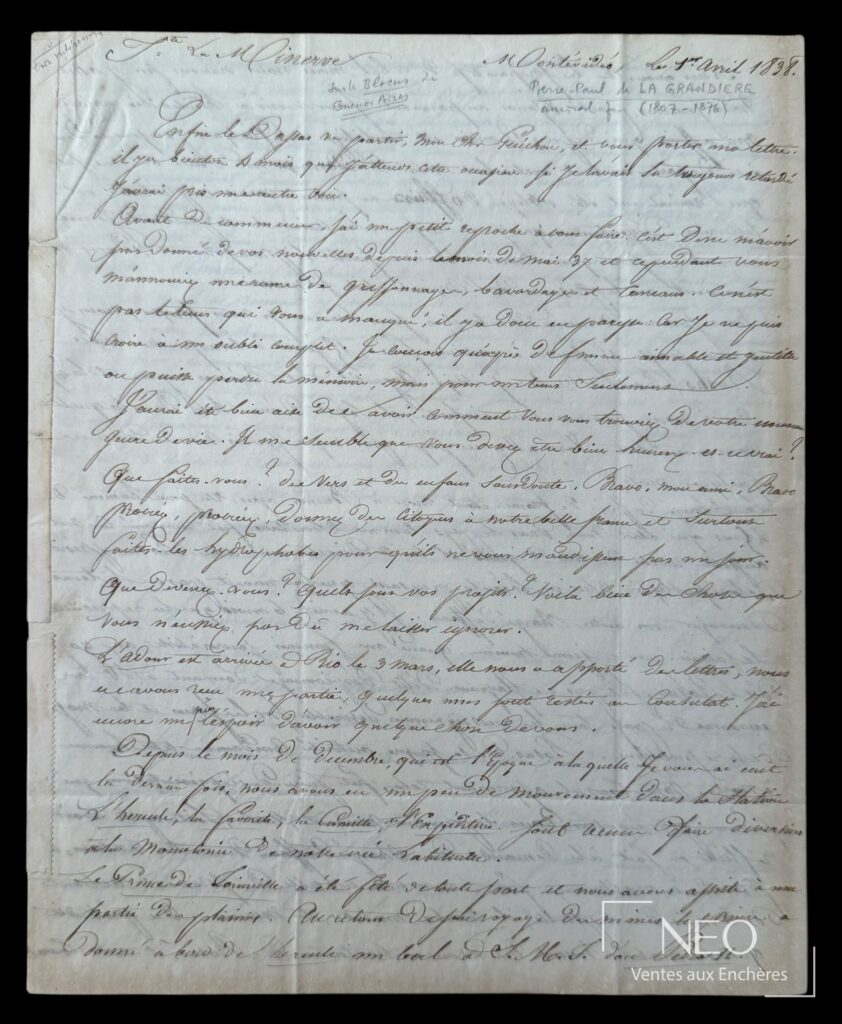 Fte La Minerve Montévidéo, le 1er Avril 1838.
sur le Blocus de
Buenos Aires
Pierre-Paul de LA GRANDIERE
amiral fr (1807-1876)
Enfin le Dassas va partir, mon cher, et vous porter ma lettre.
il y a bientôt 4 mois que j'attends cette occasion. Si je l'avais su toujours retardé
J'aurai pris une autre voie.
Avant de commencer, j'ai un petit reproche à vous faire; c'est de ne m'avoir
pas donné de vos nouvelles depuis le mois de mai 37 et cependant vous
m'annonciez une rame de griffonnages, bavardages et. Ce n'est
pas le tems qui vous a manqué, il y a donc eu paresse: Car je ne puis
croire à un oubli complet. Je conçois qu'auprès de femme aimable et gentille
on puisse perdre la mémoire, mais pour un tems seulement.
J'aurai été bien aise de savoir comment vous vous trouviez de votre nouveau
genre de vie. Il me semble que vous devez être bien heureux. est-ce vrai?
Que faites-vous? des vers et des enfans sans doute. Bravo, mon ami, Bravo
, donnez des citoyens à notre belle france et surtout
faites-les hydrophobes pour qu'ils ne vous maudissent pas un jour.
Que devenez-vous? Quels sont vos projets? Voilà bien des choses que
vous n'eussiez pas dû me laisser ignorer.
L'adour est arrivée à Rio le 3 mars, elle nous a apporté des lettres, nous
en avons reçu une partie, quelques unes sont restés au Consulat. J'ai
encore un peu l'espoir d'avoir quelque chose de vous.
Depuis le mois de decembre, qui est l'époque à laquelle je vous ai écrit
la dernière fois, nous avons eu un peu de mouvement dans la station
L'hercule, la favorite, la Camille, l'Expéditive sont venus faire diversion
à la monotonie de notre vie habituelle.
Le Prince de Joinville a été fêté de toute part et nous avons assisté à une
partie des plaisirs. Au retour de son voyage des mines le Prince a
donné à bord de l'hercule un bal à S. M. I. don
NEO
Ventes aux Enchères